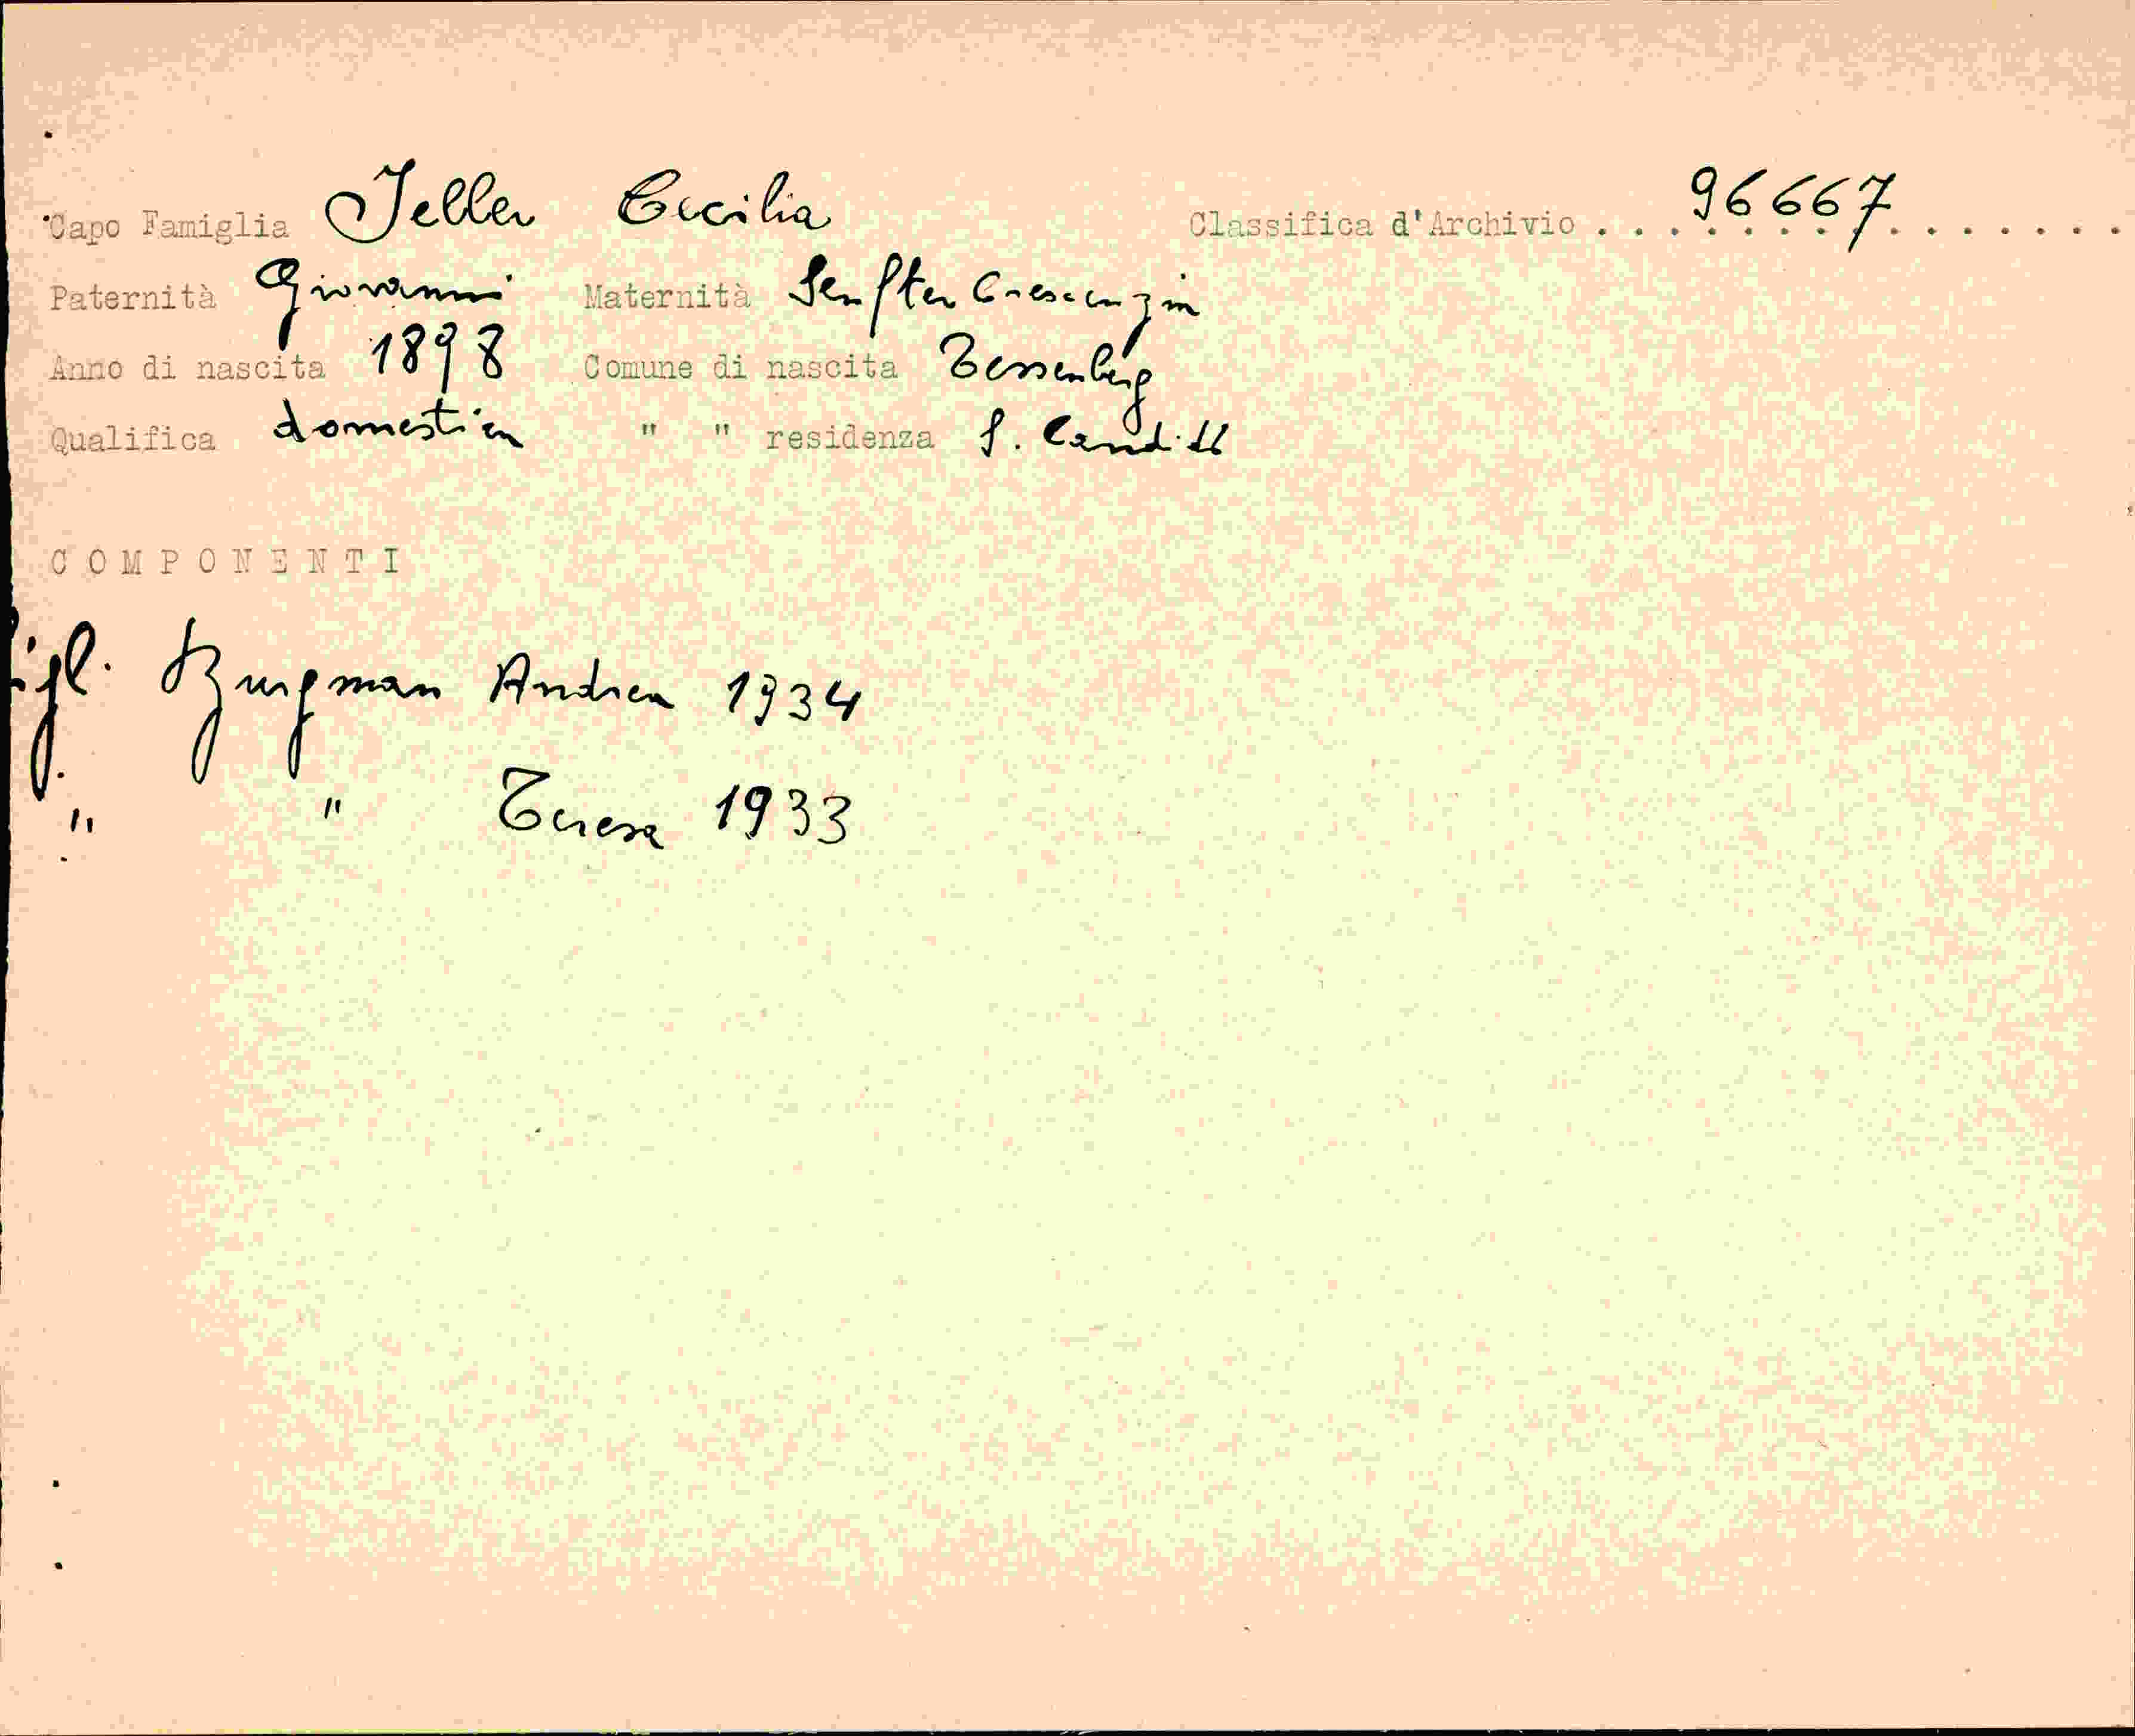 Capo Famiglia Jeller Cecilia Classifica d'Archivio 96667
Paternità Giovanni Maternità Senfter Crescenzia
Anno di nascita 1898 Comune di nascita Tessenberg
Qualifica domestica " " residenza S. Candido
COMPONENTI
figl. Burgman Andrea 1934
" " Teresa 1933